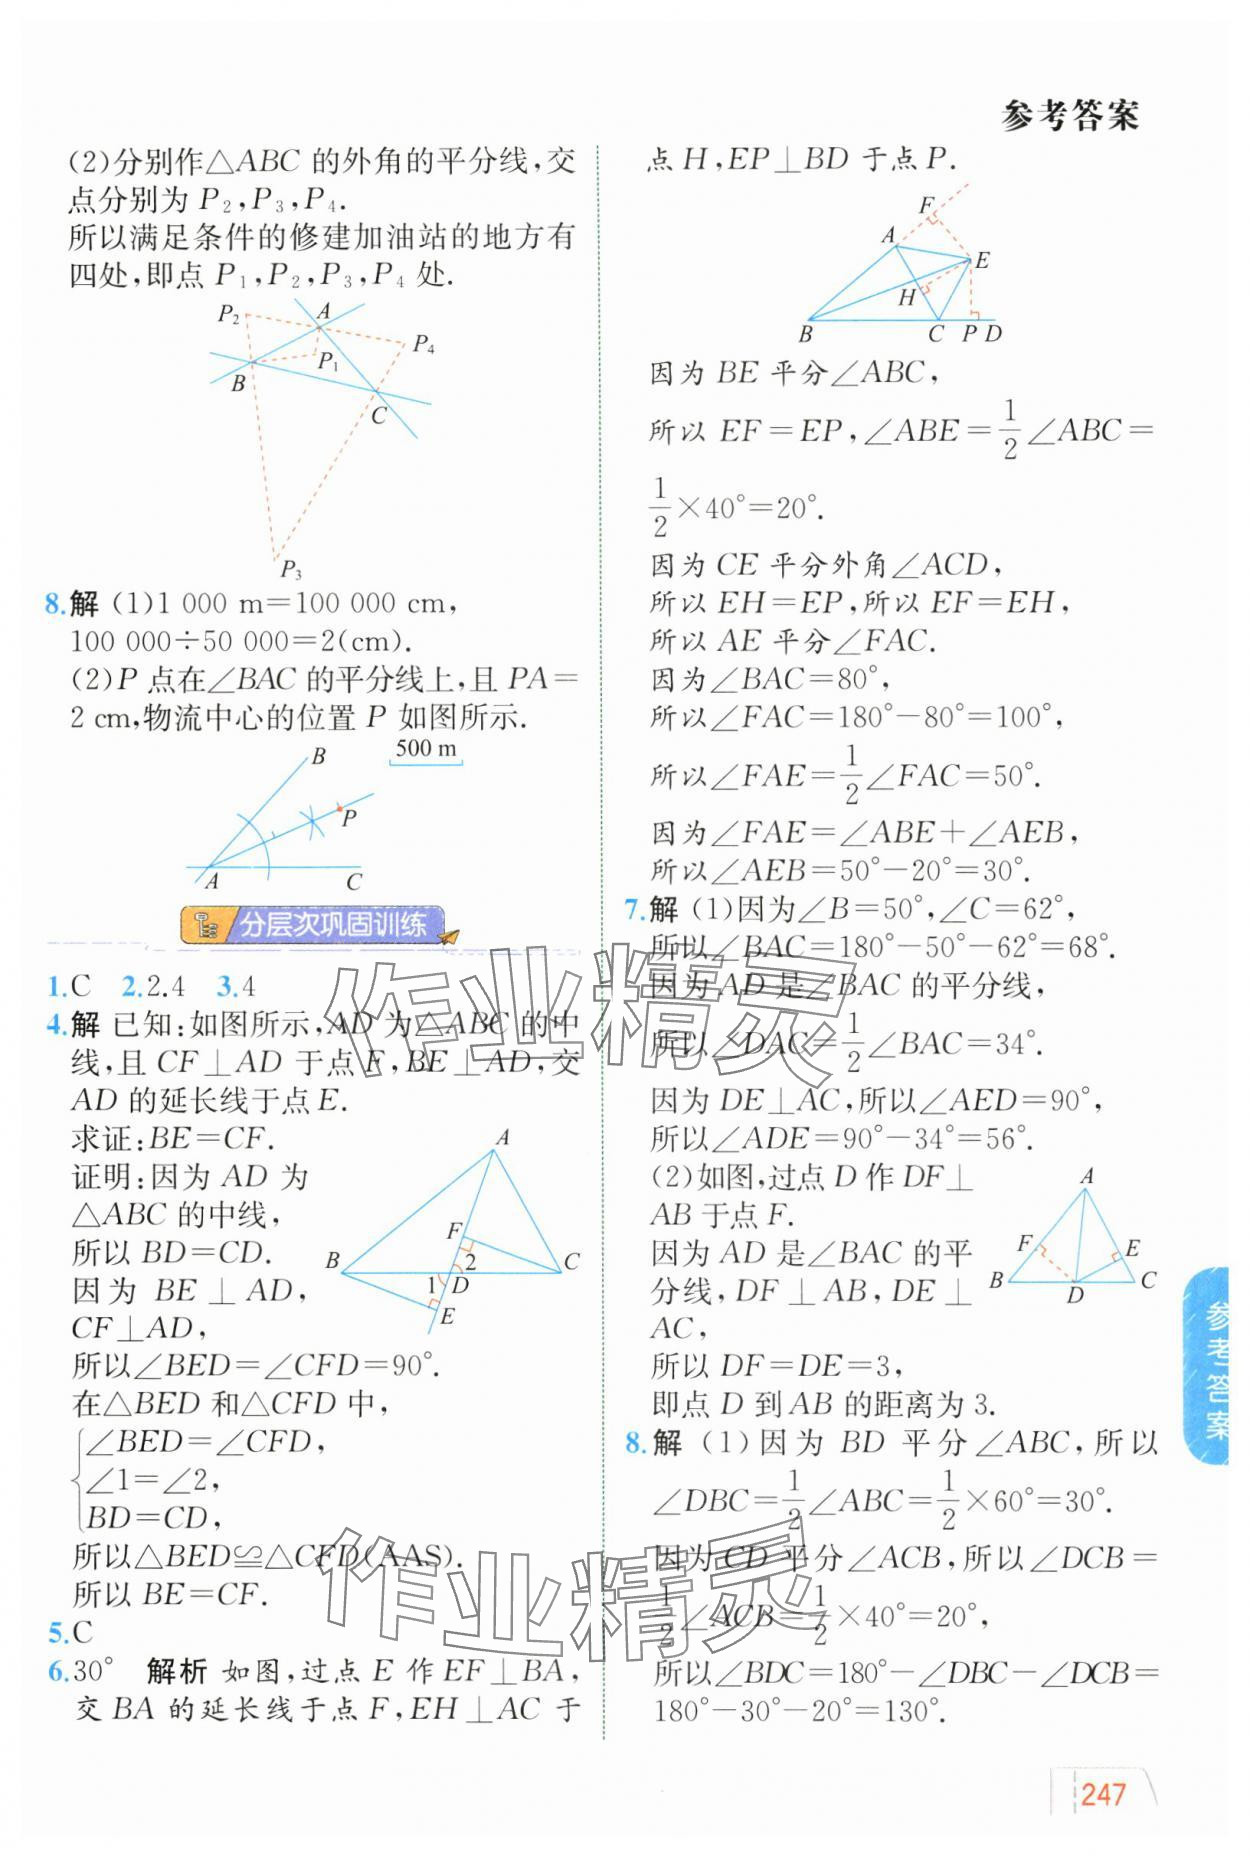 参考答案
(2)分别作△ABC 的外角的平分线,交
点分别为 P₂,P₃,P₄.
所以满足条件的修建加油站的地方有
四处,即点 P₁,P₂,P₃,P₄ 处.
P₂ A P₄
P₁
B C
P₃
8.解 (1)1 000 m=100 000 cm,
100 000÷50 000=2(cm).
(2)P 点在∠BAC 的平分线上,且 PA=
2 cm,物流中心的位置 P 如图所示.
B 500 m
P
A C
分层次巩固训练
1.C 2.2.4 3.4
4.解 已知:如图所示,AD 为△ABC 的中
线,且 CF⊥AD 于点 F,BE⊥AD,交
AD 的延长线于点 E.
求证:BE=CF.
证明:因为 AD 为
△ABC 的中线,
所以 BD=CD.
因为 BE⊥AD,
CF⊥AD,
A
F
B 2 C
1 D
E
所以∠BED=∠CFD=90°.
在△BED 和△CFD 中,
∠BED=∠CFD,
∠1=∠2,
BD=CD,
所以△BED≌△CFD(AAS).
所以 BE=CF.
5.C
6.30° 解析 如图,过点 E 作 EF⊥BA,
交 BA 的延长线于点 F,EH⊥AC 于
点 H,EP⊥BD 于点 P.
F
A
E
H
B C P D
因为 BE 平分∠ABC,
所以 EF=EP,∠ABE=1/2∠ABC=
1/2×40°=20°.
因为 CE 平分外角∠ACD,
所以 EH=EP,所以 EF=EH,
所以 AE 平分∠FAC.
因为∠BAC=80°,
所以∠FAC=180°-80°=100°,
所以∠FAE=1/2∠FAC=50°.
因为∠FAE=∠ABE+∠AEB,
所以∠AEB=50°-20°=30°.
7.解 (1)因为∠B=50°,∠C=62°,
所以∠BAC=180°-50°-62°=68°.
因为 AD 是∠BAC 的平分线,
所以∠DAC=1/2∠BAC=34°.
因为 DE⊥AC,所以∠AED=90°,
所以∠ADE=90°-34°=56°.
(2)如图,过点 D 作 DF⊥
AB 于点 F.
因为 AD 是∠BAC 的平
分线,DF⊥AB,DE⊥
AC,
A
F E
B D C
所以 DF=DE=3,
即点 D 到 AB 的距离为 3.
8.解 (1)因为 BD 平分∠ABC,所以
∠DBC=1/2∠ABC=1/2×60°=30°.
因为 CD 平分∠ACB,所以∠DCB=
1/2∠ACB=1/2×40°=20°,
所以∠BDC=180°-∠DBC-∠DCB=
180°-30°-20°=130°.
参考答案
247
作业精灵
作业精灵